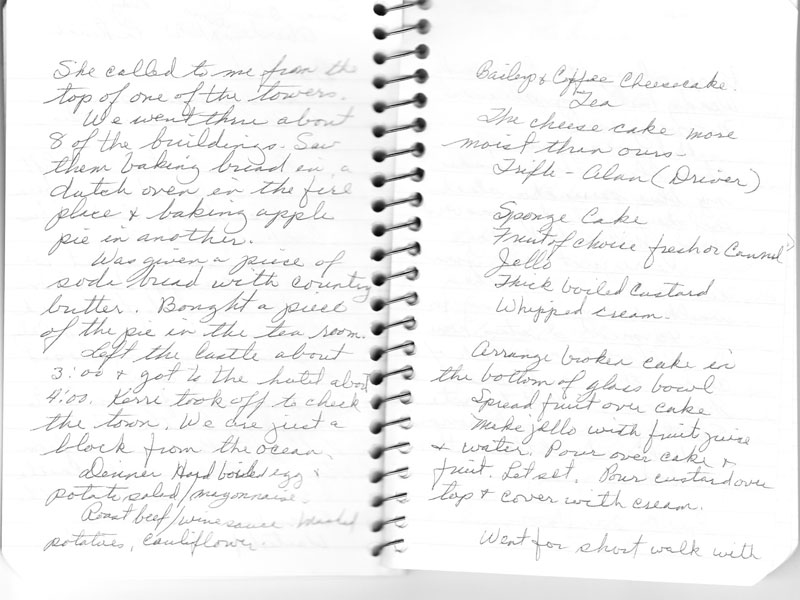 She called to me from the
top of one of the towers.
We went thru about
8 of the buildings. Saw
them baking bread in a
dutch oven in the fire
place & baking apple
pie in another.
Was given a piece of
soda bread with country
butter. Bought a piece
of the pie in the tea room.
Left the castle about
3:00 & got to the hotel about
4:00. Kerri took off to check
the town. We are just a
block from the ocean.
Denner Hard boiled egg &
potato salad/mayonnaise.
Roast beef/wine sauce Mashed
potatoes, Cauliflower
Baileys & Coffee Cheesecake.
Tea
The cheese cake more
moist than ours -
Trifle - Alan (Driver)
Sponge Cake
Fruit of choice fresh or Canned
Jello
Thick boiled Custard
Whipped cream.
Arrange broken cake in
the bottom of glass bowl
Spread fruit over cake
Make jello with fruit juice
& water. Pour over cake &
fruit. Let set. Pour custard over
top & cover with cream.
Went for short walk with